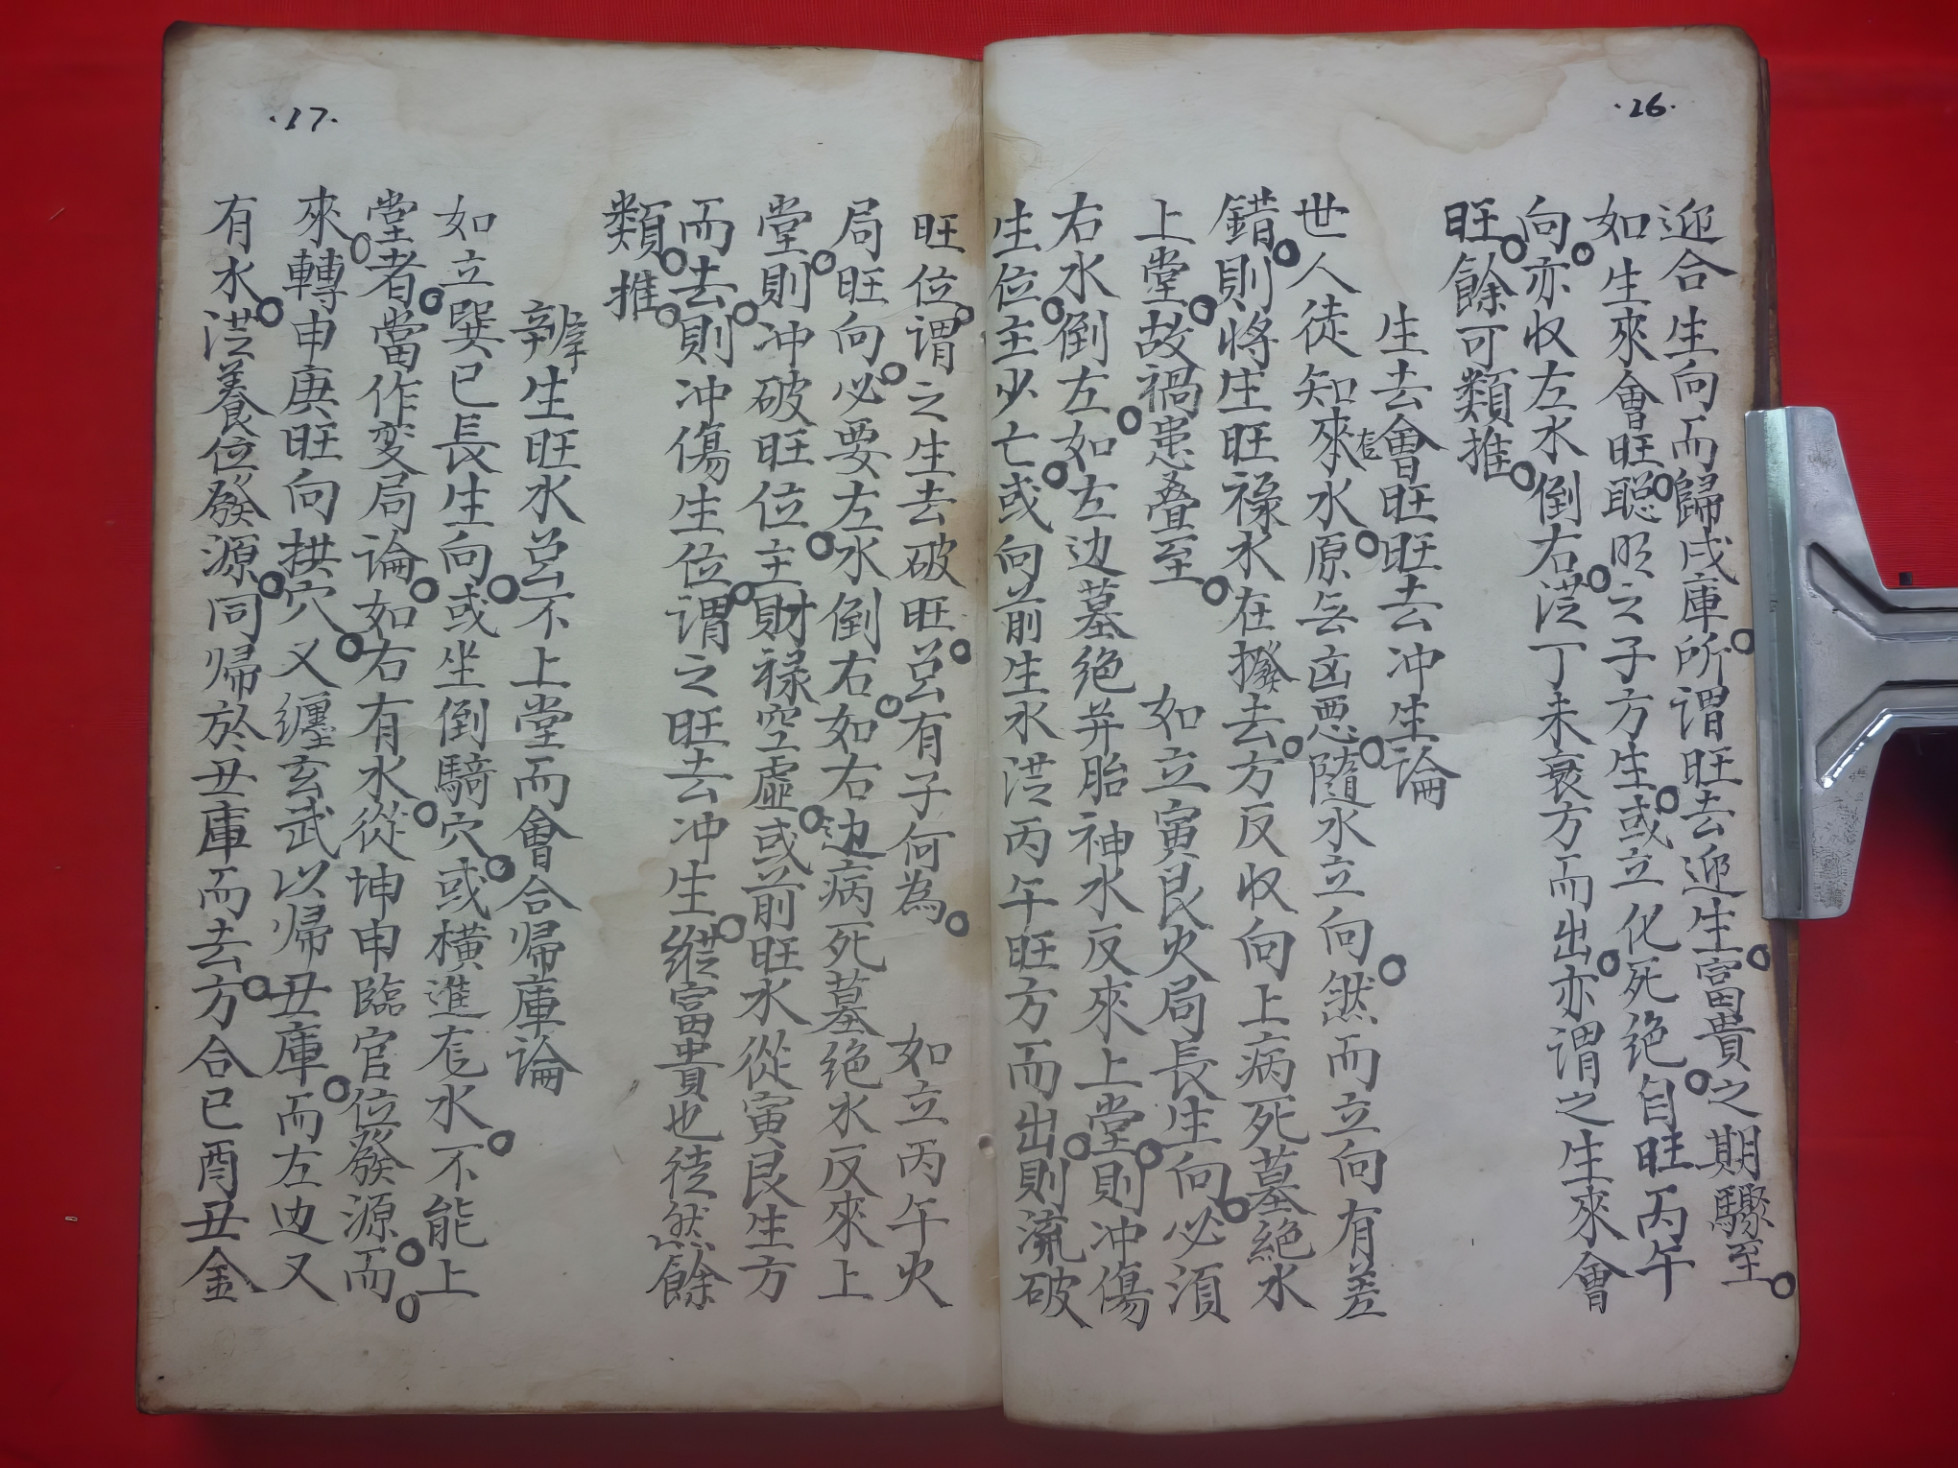 ·16·
迎合生向而歸戌庫。所谓旺去迎生。富貴之期驟至。
如生來會旺。聪明之子方生。或立化死绝。自旺丙午
向。亦收左水倒右。從丁未衰方而出。亦谓之生來會
旺。餘可類推。
生去會旺旺去冲生論
世人徒知來去水。原無凶惡。隨水立向。然而立向有差
錯。則將生旺祿水在撥去。方反收向上病死墓絕水
上堂。故禍患叠至。 如立寅艮火局長生向。必須
右水倒左。如左边墓绝并胎神水反來上堂。則冲傷
生位。主少亡。或向前生水從丙午旺方而出。則流破
·17·
旺位。谓之生去破旺。岂有子何為。 如立丙午火
局旺向。必要左水倒右。如右边病死墓绝水反來上
堂。則冲破旺位。主財禄空虛。或前旺水從寅艮生方
而去。則冲傷生位。谓之旺去冲生。縱富貴也徒然餘
類。推。
辨生旺水岂不上堂而會合帰庫論
如立巽巳長生向。或坐倒騎穴。或橫進右水。不能上
堂者。當作变局論。如右有水。從坤申臨官位發源。而。
來。轉申庚旺向拱穴。又纏玄武以帰丑庫。而左边又
有水。從養位發源。同帰於丑庫而去。方合巳酉丑金